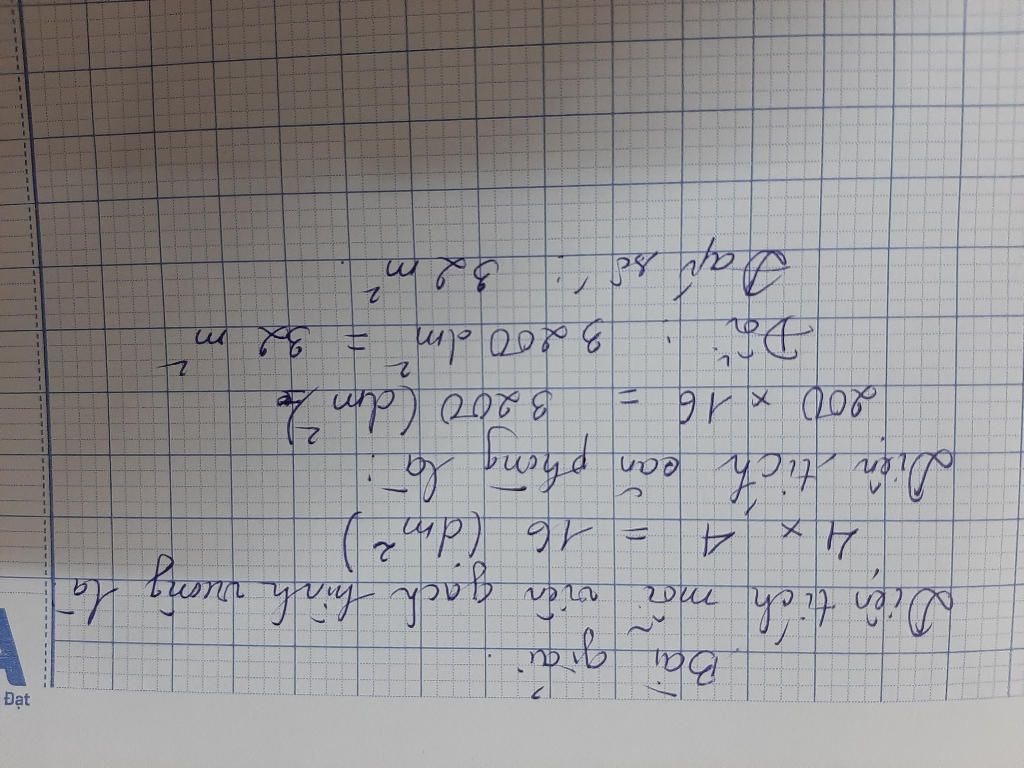 Bài giải
Diện tích mỗi viên gạch hình vuông là
4 x 4 = 16 (dm²)
Diện tích căn phòng là :
200 x 16 = 3200 (dm²)
Đổi : 3200 dm² = 32 m²
Đáp số : 32 m²
A
Đạt